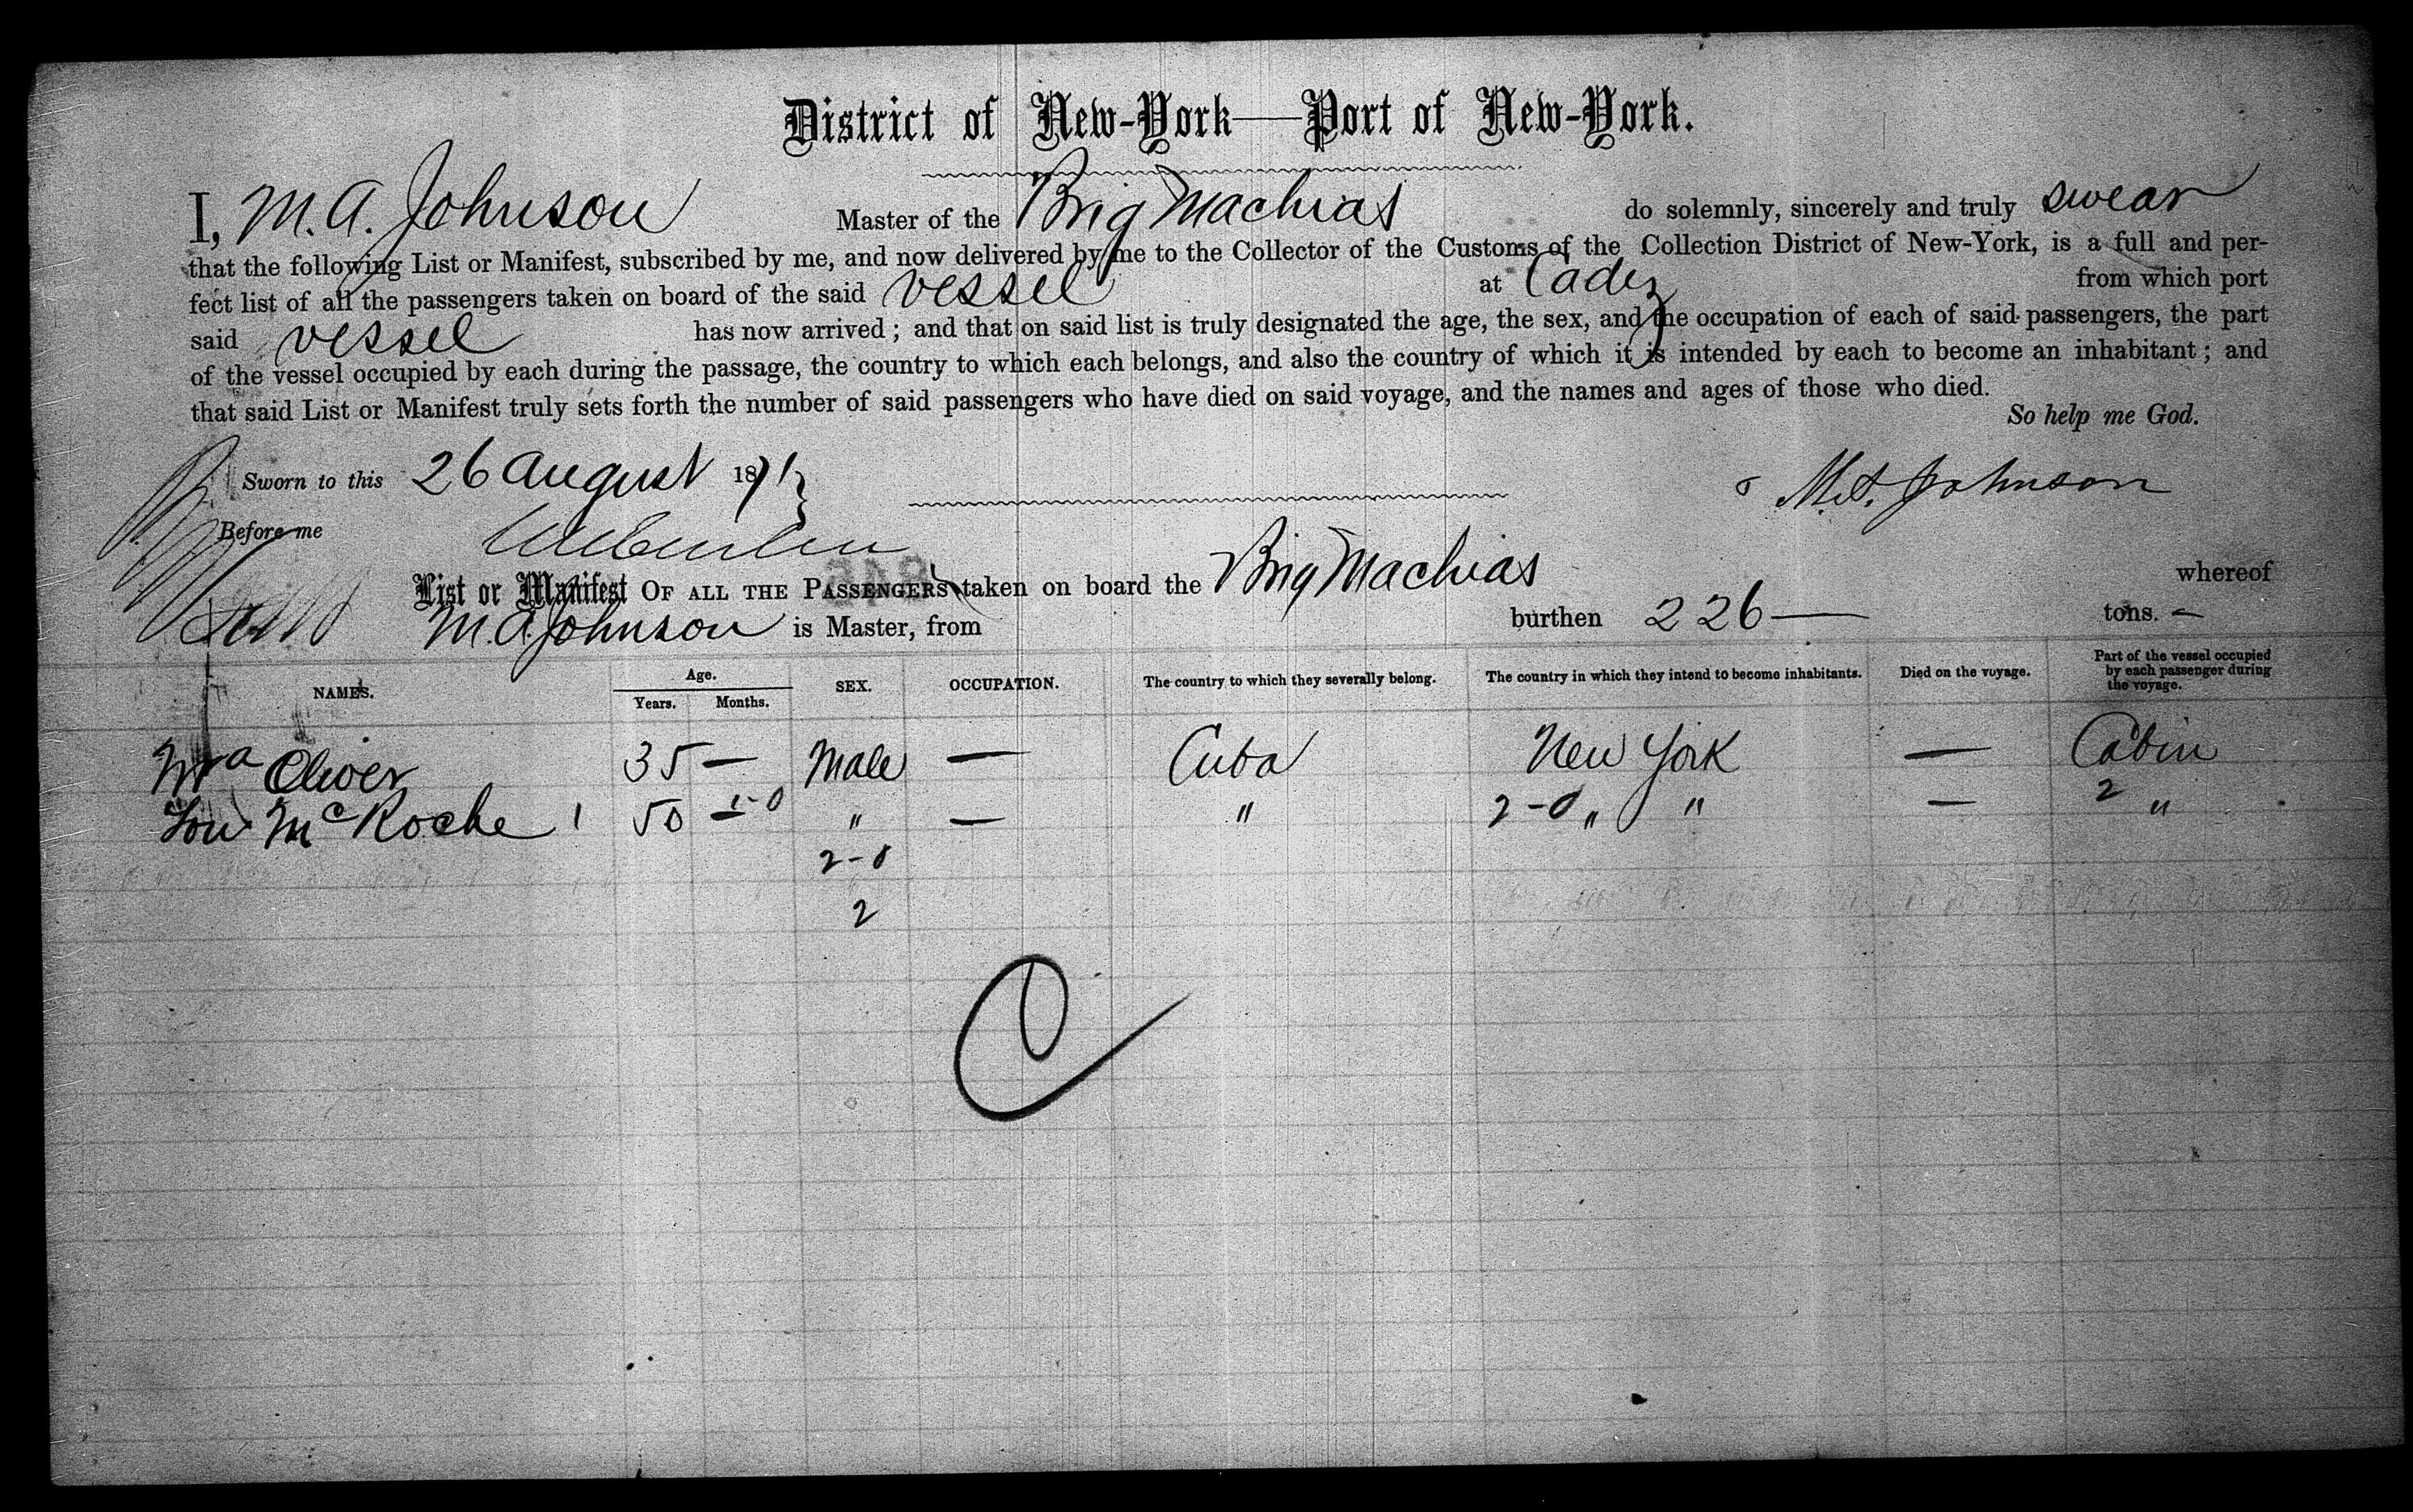 District of New-York—Port of New-York.
I, M. A. Johnson Master of the Brig Machias do solemnly, sincerely and truly swear
that the following List or Manifest, subscribed by me, and now delivered by me to the Collector of the Customs of the Collection District of New-York, is a full and per-
fect list of all the passengers taken on board of the said vessel at Cadiz from which port
said vessel has now arrived; and that on said list is truly designated the age, the sex, and the occupation of each of said passengers, the part
of the vessel occupied by each during the passage, the country to which each belongs, and also the country of which it is intended by each to become an inhabitant; and
that said List or Manifest truly sets forth the number of said passengers who have died on said voyage, and the names and ages of those who died.
So help me God.
Sworn to this 26 August 1871 M. A. Johnson
Before me
List or Manifest OF ALL THE PASSENGERS taken on board the Brig Machias whereof
M. A. Johnson is Master, from burthen 226 — tons. —
NAMES. Age. Years. Months. SEX. OCCUPATION. The country to which they severally belong. The country in which they intend to become inhabitants. Died on the voyage. Part of the vessel occupied by each passenger during the voyage.
Oliver 35 — Male — Cuba New York — Cabin
Mc Roche 1 50 — 1-0 " — " 2-0 " " — 2 "
2-0
2
C